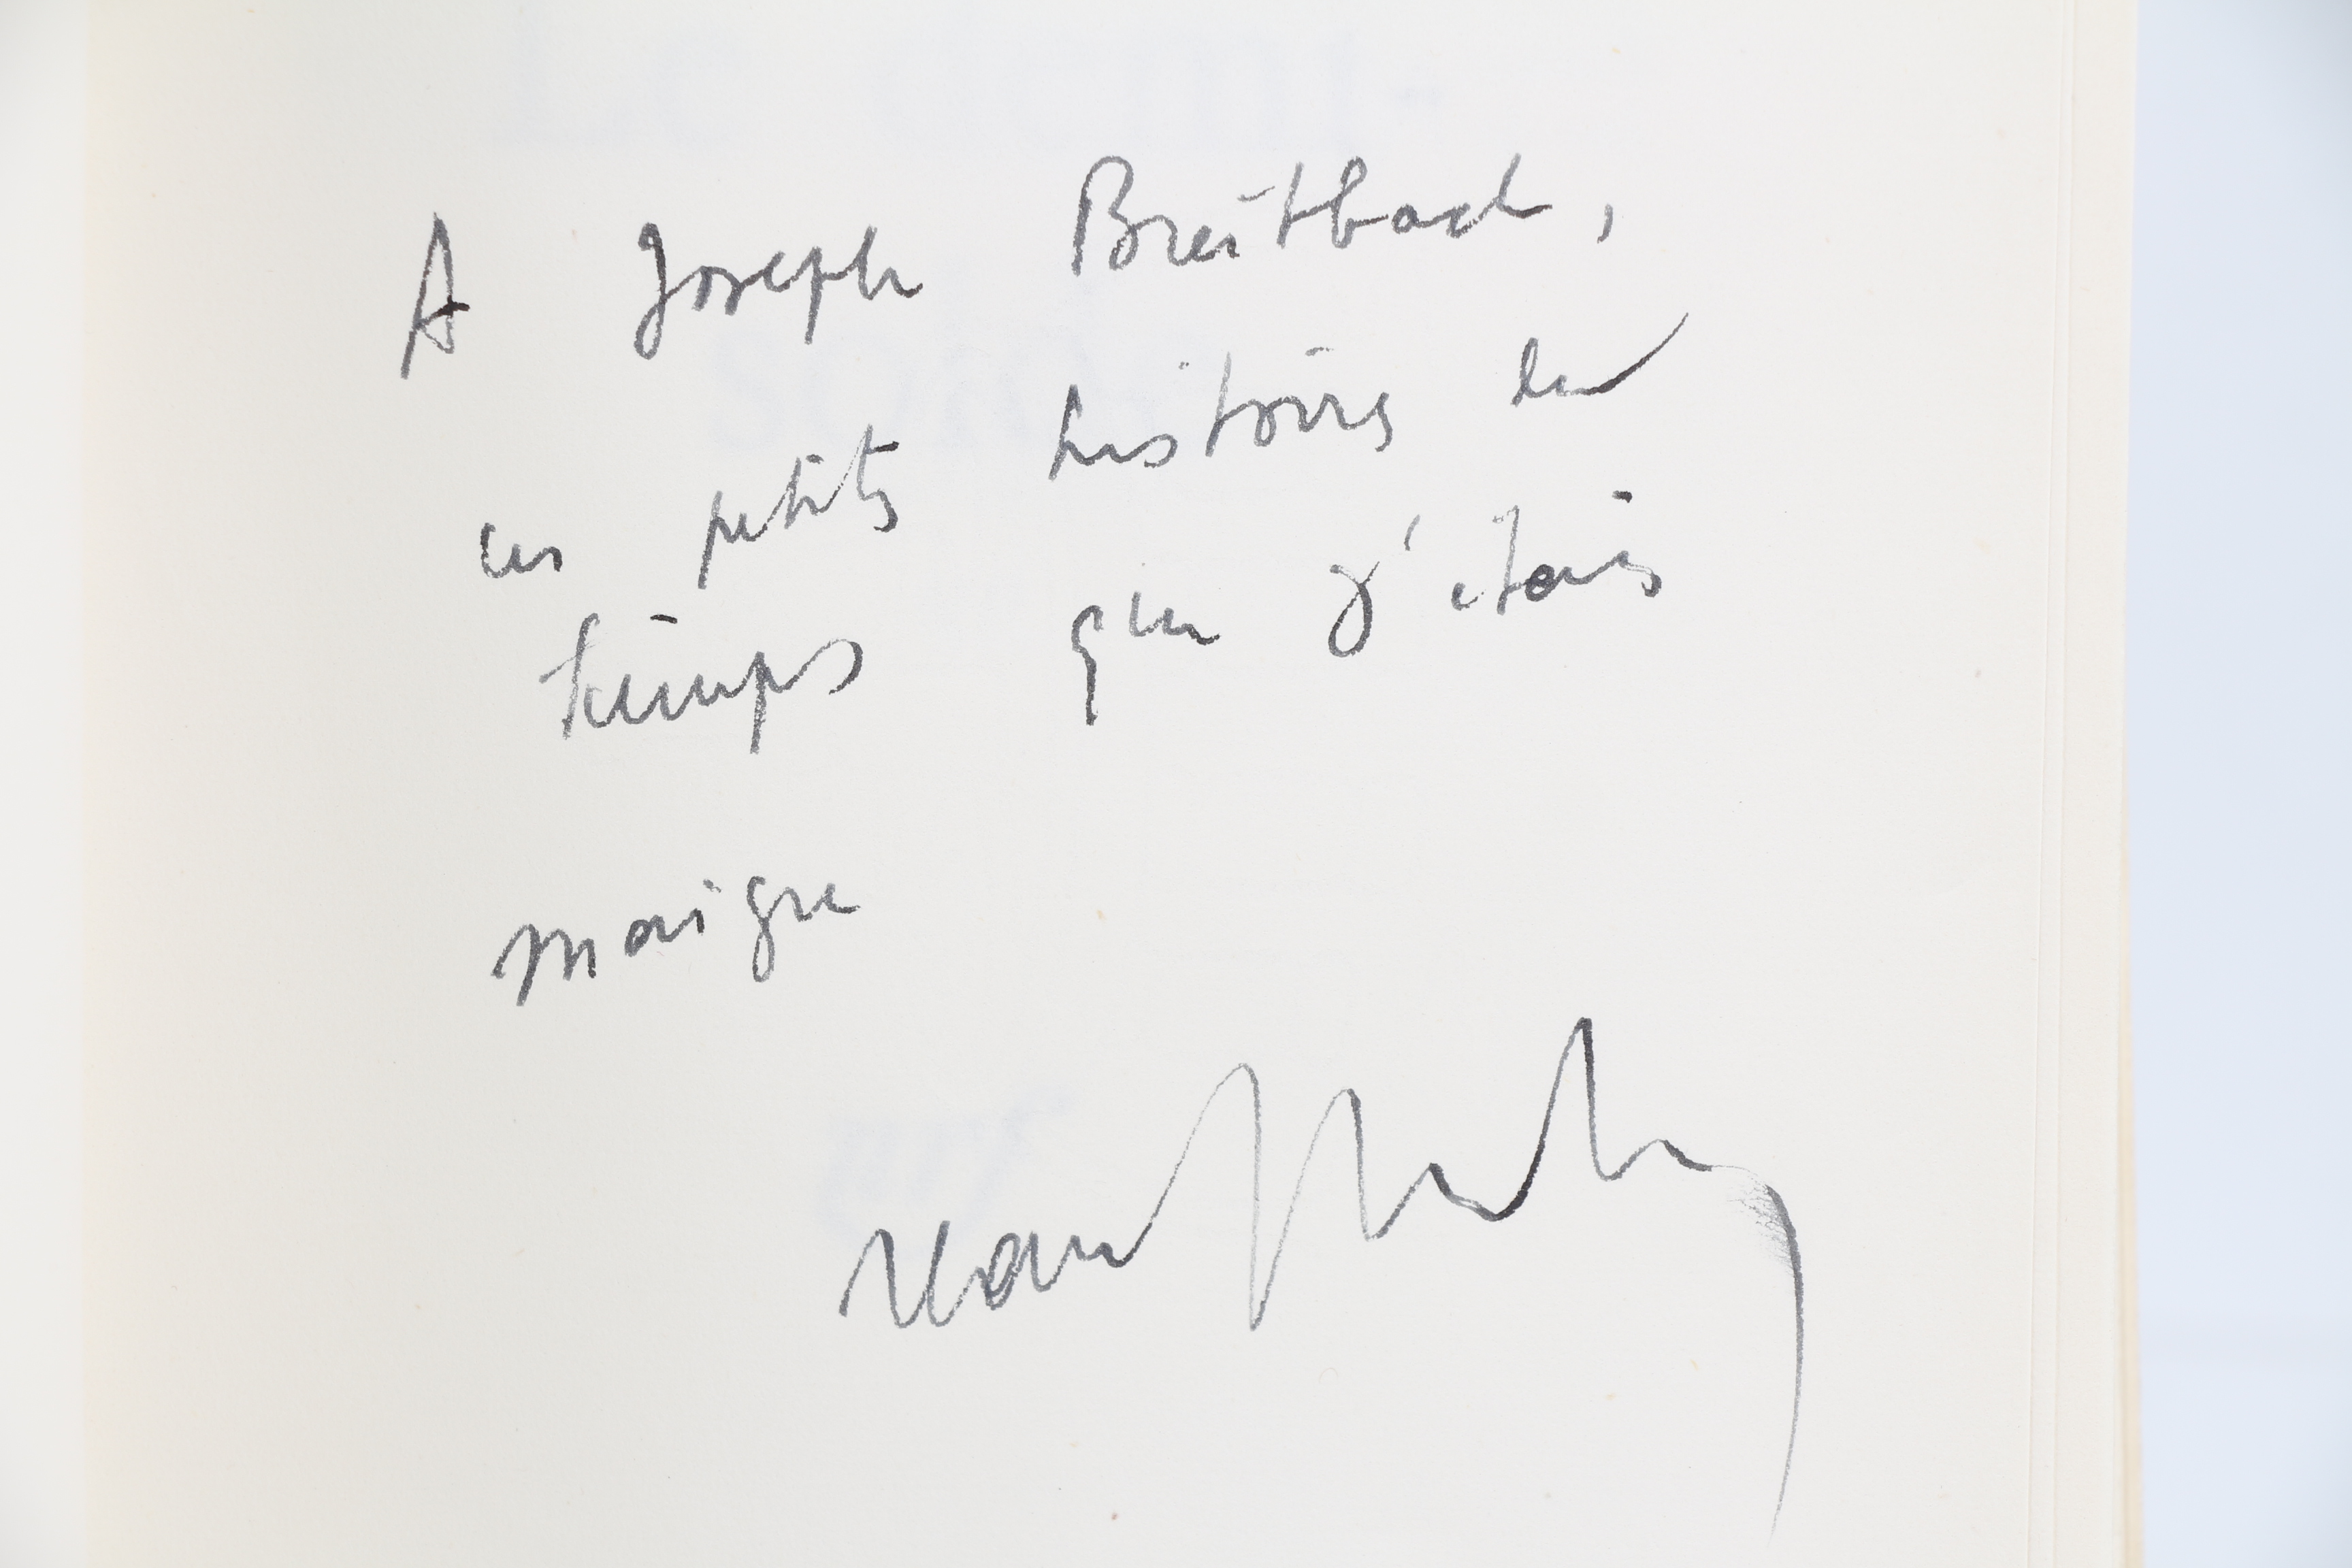 A Joseph Breitbach,
ces petites histoires du
temps que j'étais
maigre